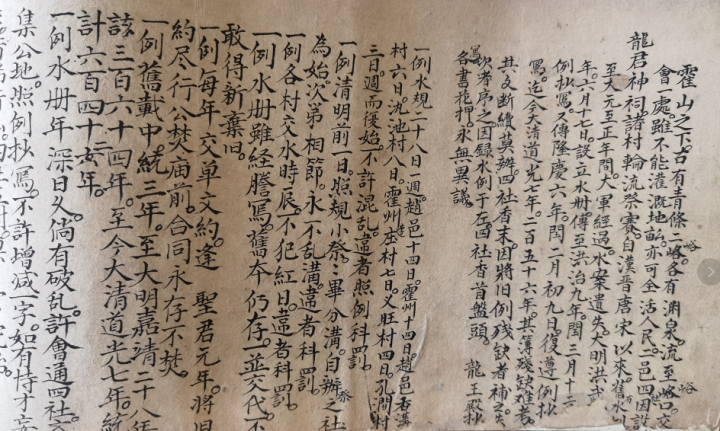 霍山之下。古有青條二峪。各有淵泉。流至峪口。交
會一處。雖不能灌溉地畝。亦可全活人民。一邑四因設
龍君神祠。諸村輪流祭賽。自漢晉唐宋以來舊水
至大元至正年間。大軍經過。水案遺失。大明洪武
年。六月十七日。設立水冊。傳至洪治九年。閏三月十二
例抄寫。又傳隆慶六年。閏二月初九日。復遵例抄
寫。迄今大清道光七年。二百五十六年。其簿殘缺難考。
其文斷續莫辨。四社香末。因將旧例殘缺者補之。失
欸者序之。因録水例于左。四社香首盤頭。 龍王殿抄
寫各書花押。永無異議。
一例水規二十八日一週。趙邑十四日。霍州十四日。趙邑香溝
村六日。沈池村八日。霍州庄村七日。义旺村四日。孔澗村
三日。週而復始。不許混乱。違者照例科罰。
一例清明前一日。照規小祭。祭畢分溝。自辦之社
為始。次第相節。永不乱溝。違者科罰。
一例各村交水時辰。不犯紅日。違者科罰。
一例水冊雖經謄寫。舊本仍存。一並交代。不
敢得新棄旧。
一例每年交单文約。逢 聖君元年。將旧
約尽行公焚庙前。合同永存不焚。
一例舊載中統三年。至大明嘉靖二十八年
該三百六十四年。至今大清道光七年。
計六百四十三年。
一例水冊年深日久。倘有破乱。許會通四社
集公地。照例抄寫。不許增減一字。如有恃才妄